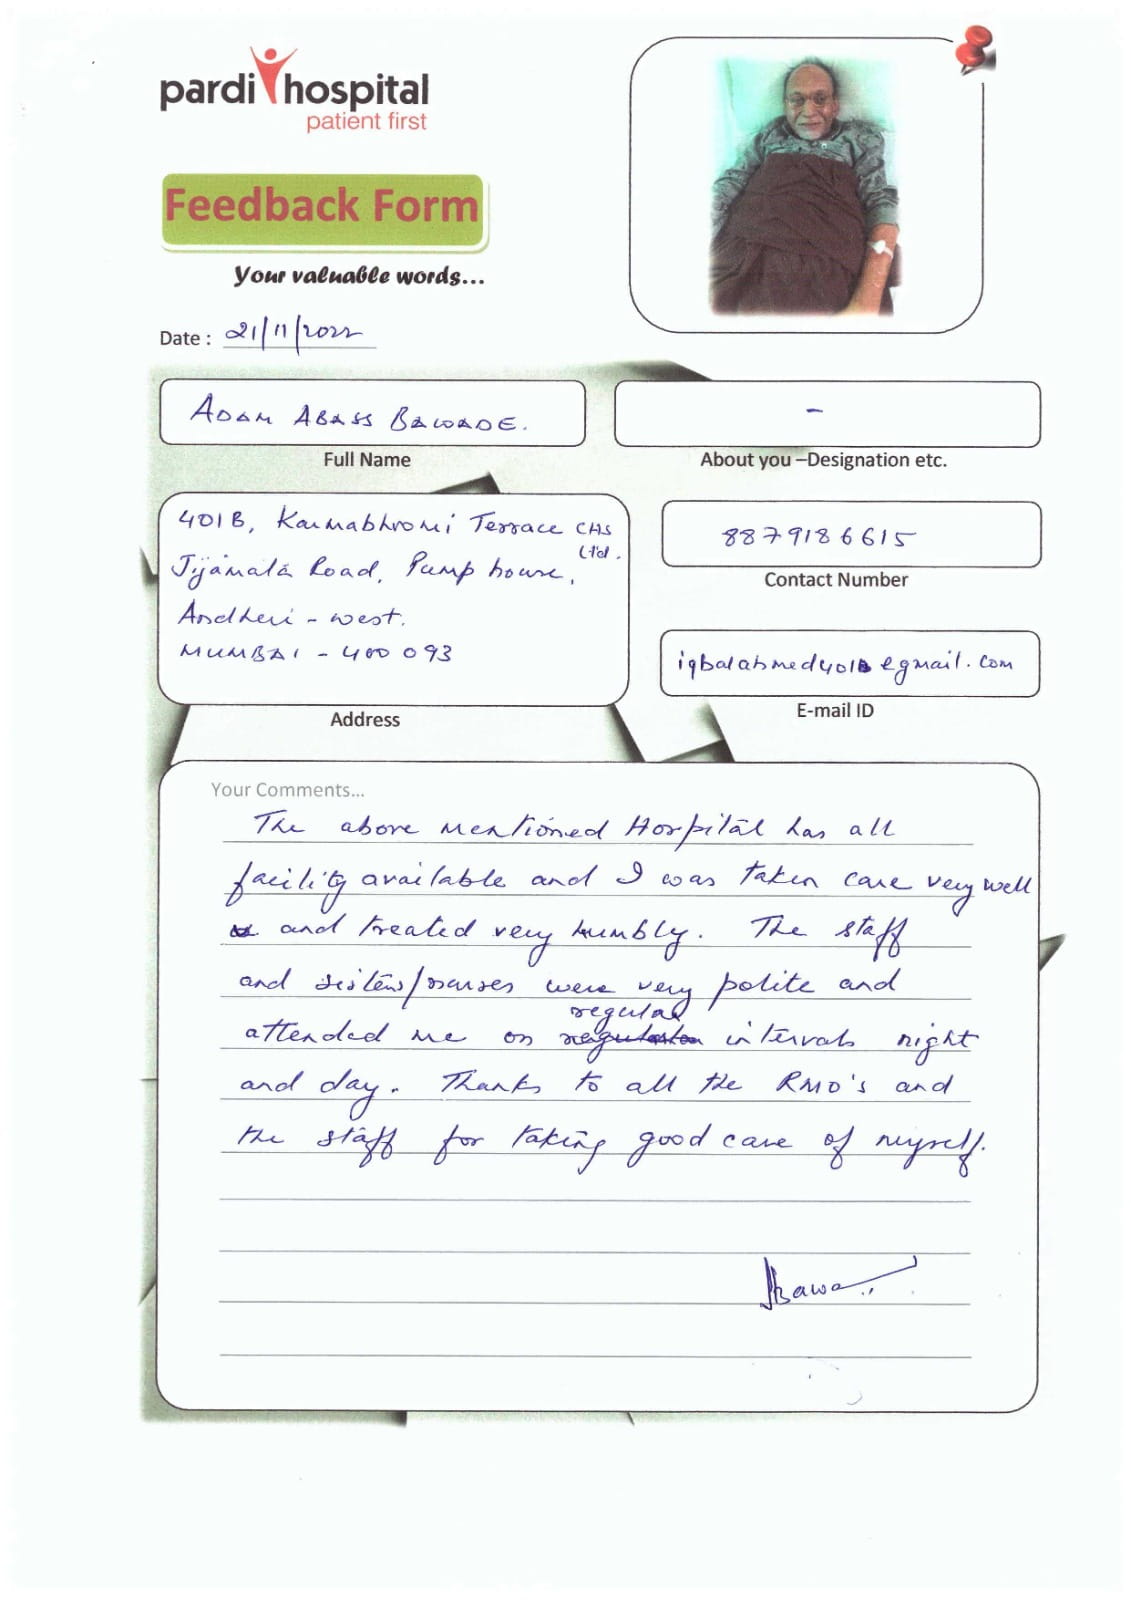 pardi hospital
patient first
Feedback Form
Your valuable words...
Date : 21/11/2022
ADAM ABASS BAWADE.
-
Full Name
About you –Designation etc.
401B, Karmabhromi Terrace CHS
Ltd.
Jijamata Road, Pump house,
Andheri - west.
MUMBAI - 400 093
Address
8879186615
Contact Number
iqbalahmed401B@gmail.com
E-mail ID
Your Comments...
The above mentioned Hospital has all
facility available and I was taken care very well
and treated very humbly. The staff
and sisters/nurses were very polite and
regular
attended me on intervals night
and day. Thanks to all the RMO's and
the staff for taking good care of myself.